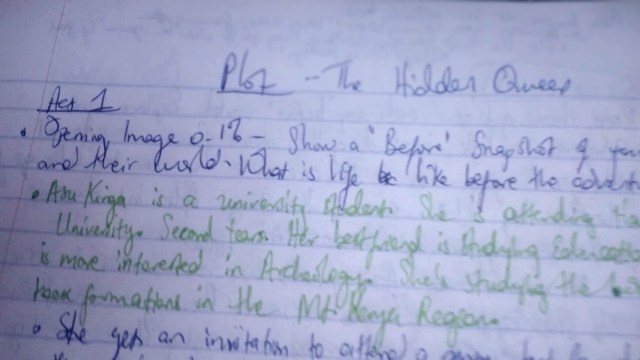 Plot - The Hidden Queen
Act 1
• Opening Image 0-1% - Show a 'Before' Snapshot of
and their world. What is life like before the
• is a university student. She is attending
University. Second Her best friend is studying
is more interested in Archeology. She's studying the
rock formations in the Mt Kenya Region.
• She gets an invitation to attend a